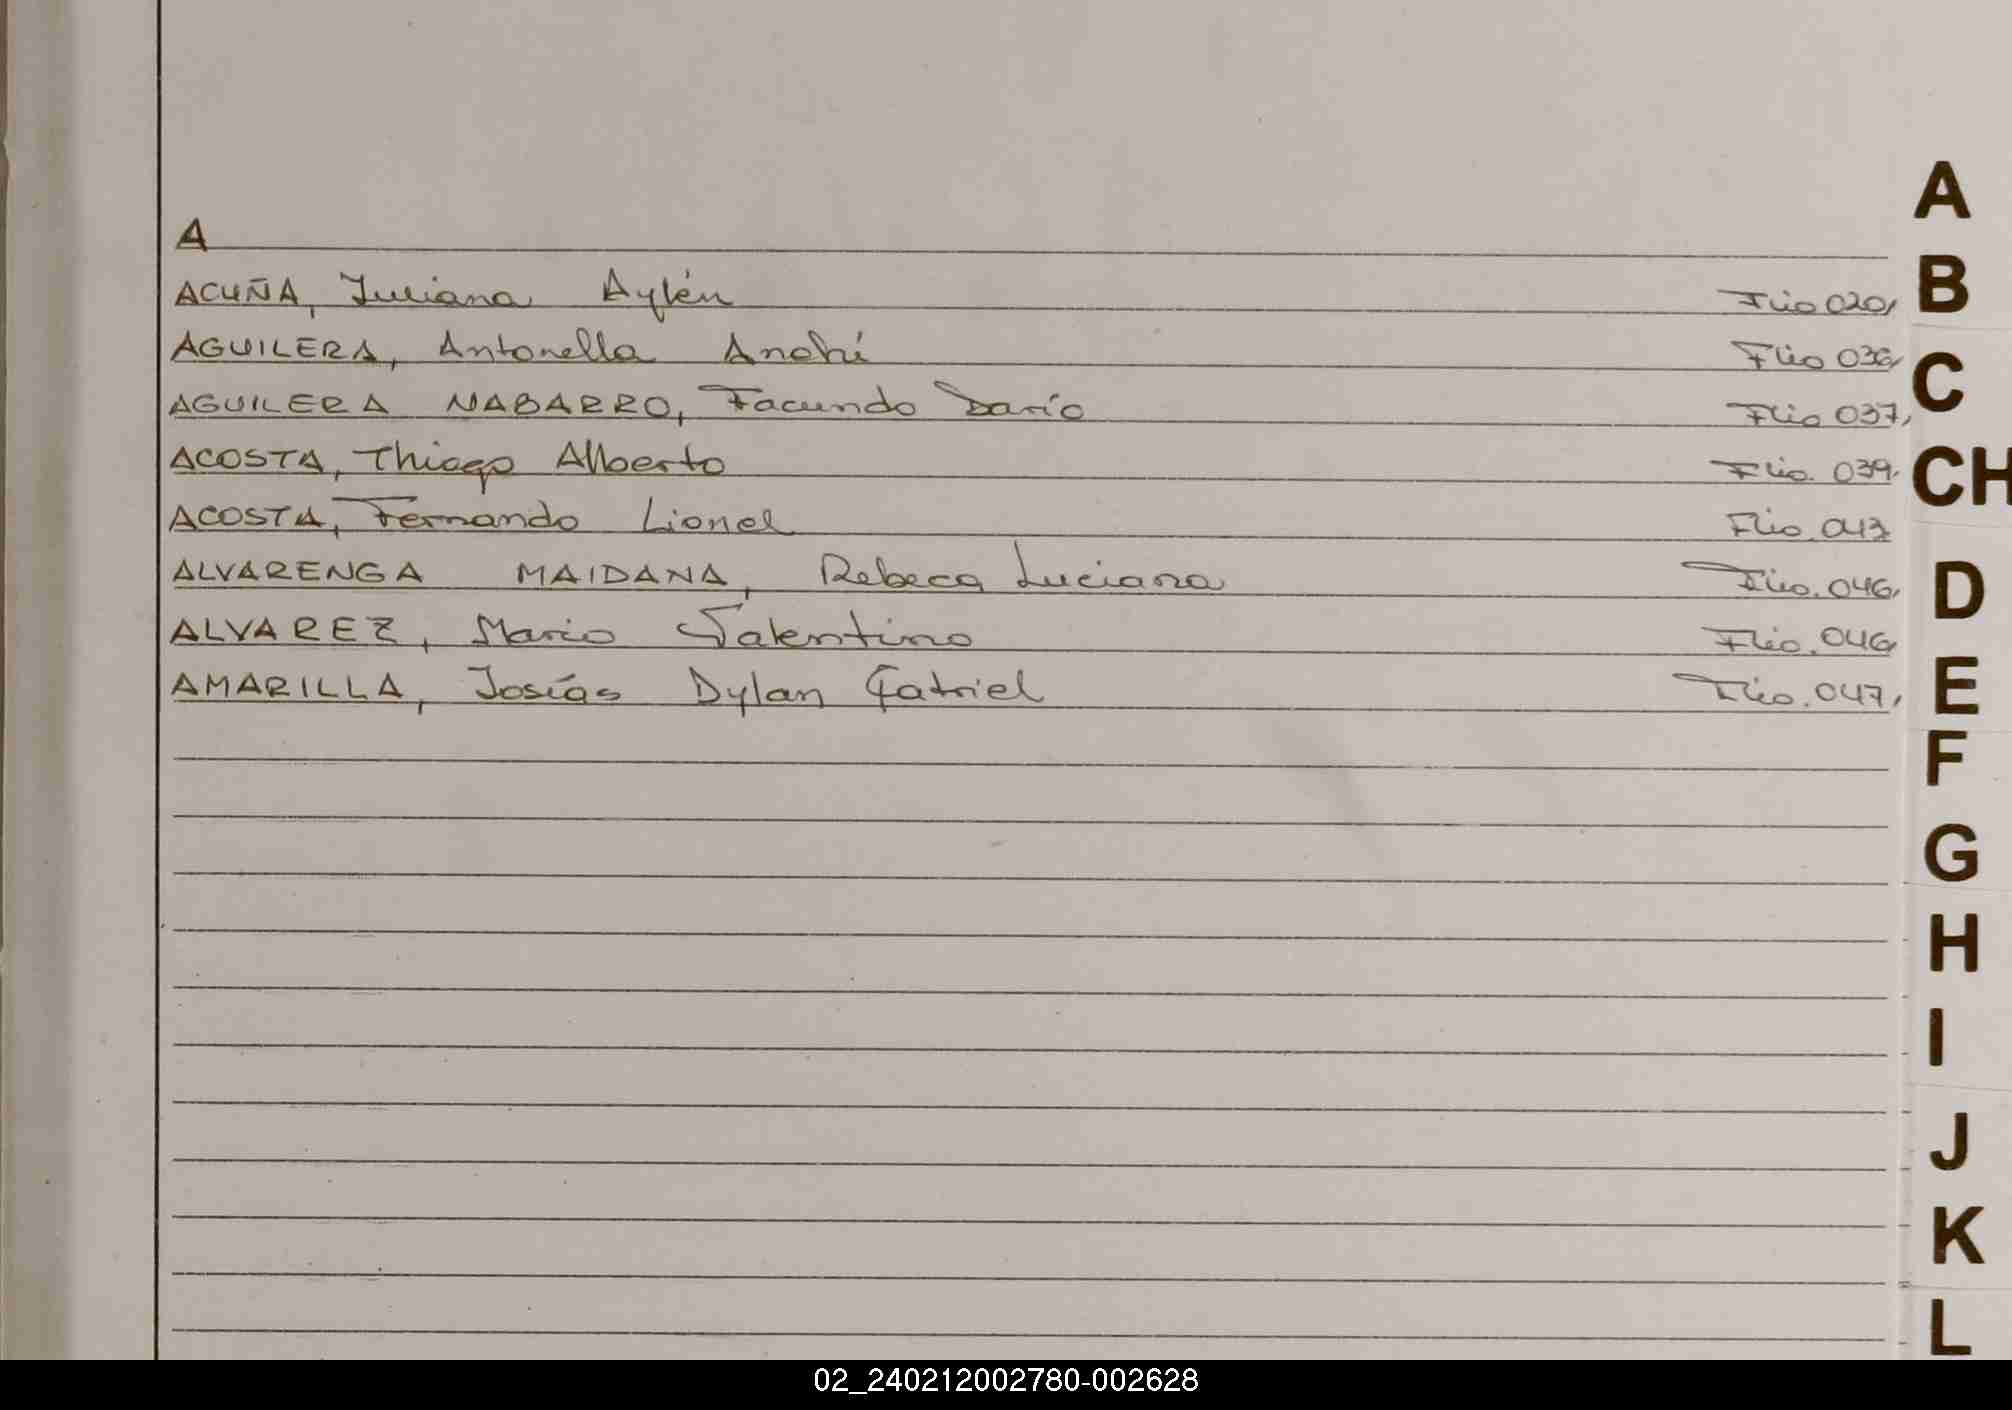 A
ACUÑA, Juliana Aylén Flio 020,
AGUILERA, Antonella Anahí Flio 036,
AGUILERA NABARRO, Facundo Darío Flio 037,
ACOSTA, Thiago Alberto Flio. 039.
ACOSTA, Fernando Lionel Flio. 043
ALVARENGA MAIDANA, Rebeca Luciana Flio. 046,
ALVAREZ, Mario Valentino Flio. 046,
AMARILLA, Josías Dylan Gatriel Flio. 047,
A
B
C
CH
D
E
F
G
H
I
J
K
L
02_240212002780-002628